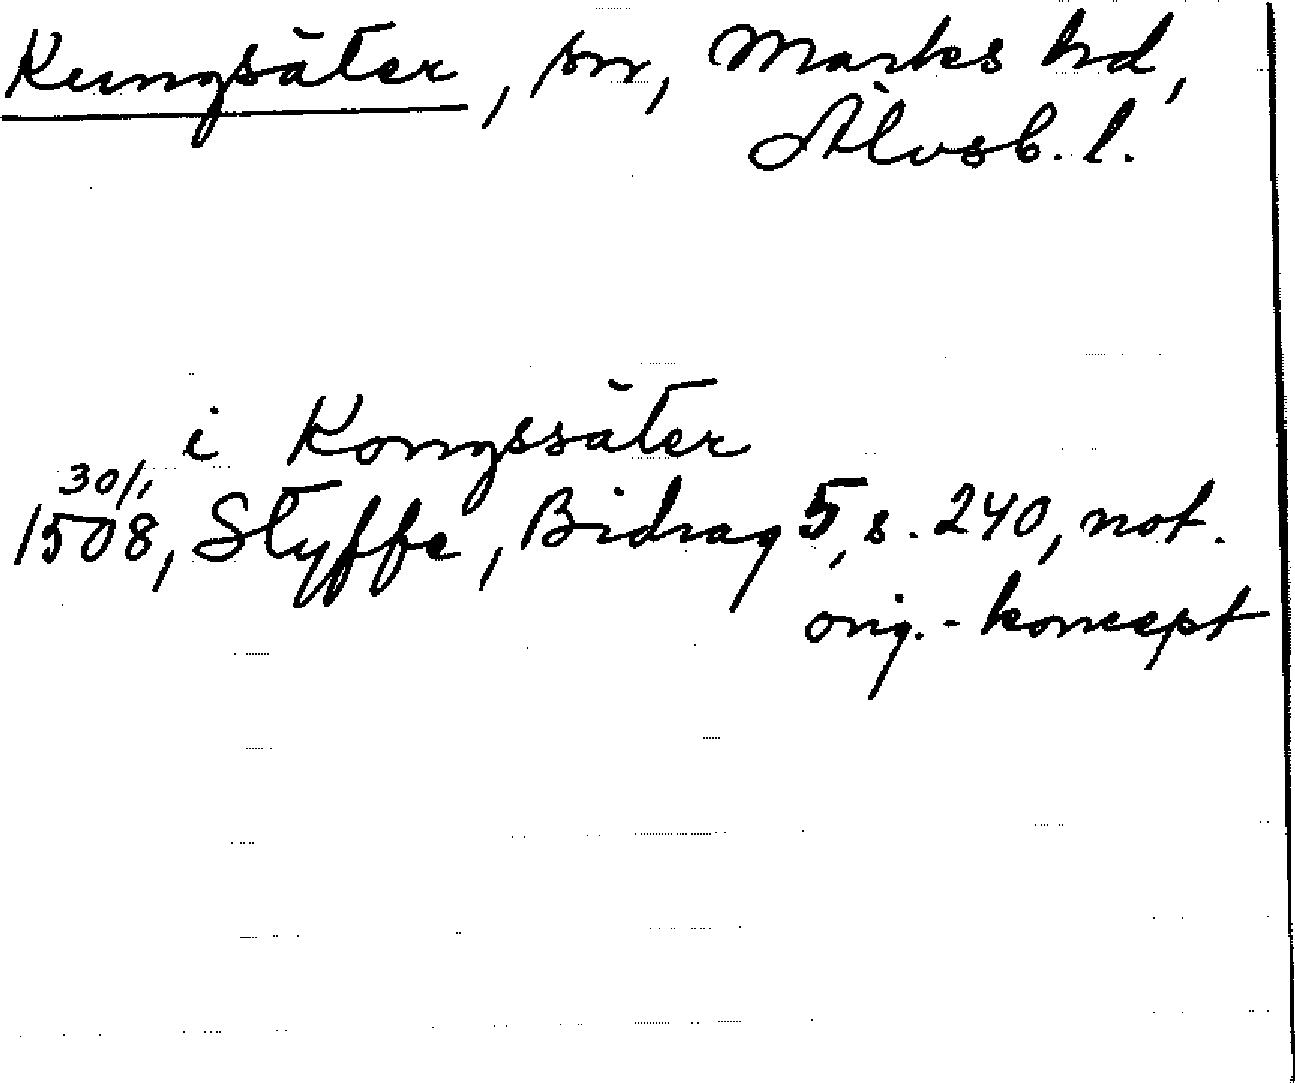 Kungsäter, sn, Marks hd,
Älvsb. l.
i Kongssäter
30/1
1508, Styffe, Bidrag 5, s. 240, not.
orig.-koncept